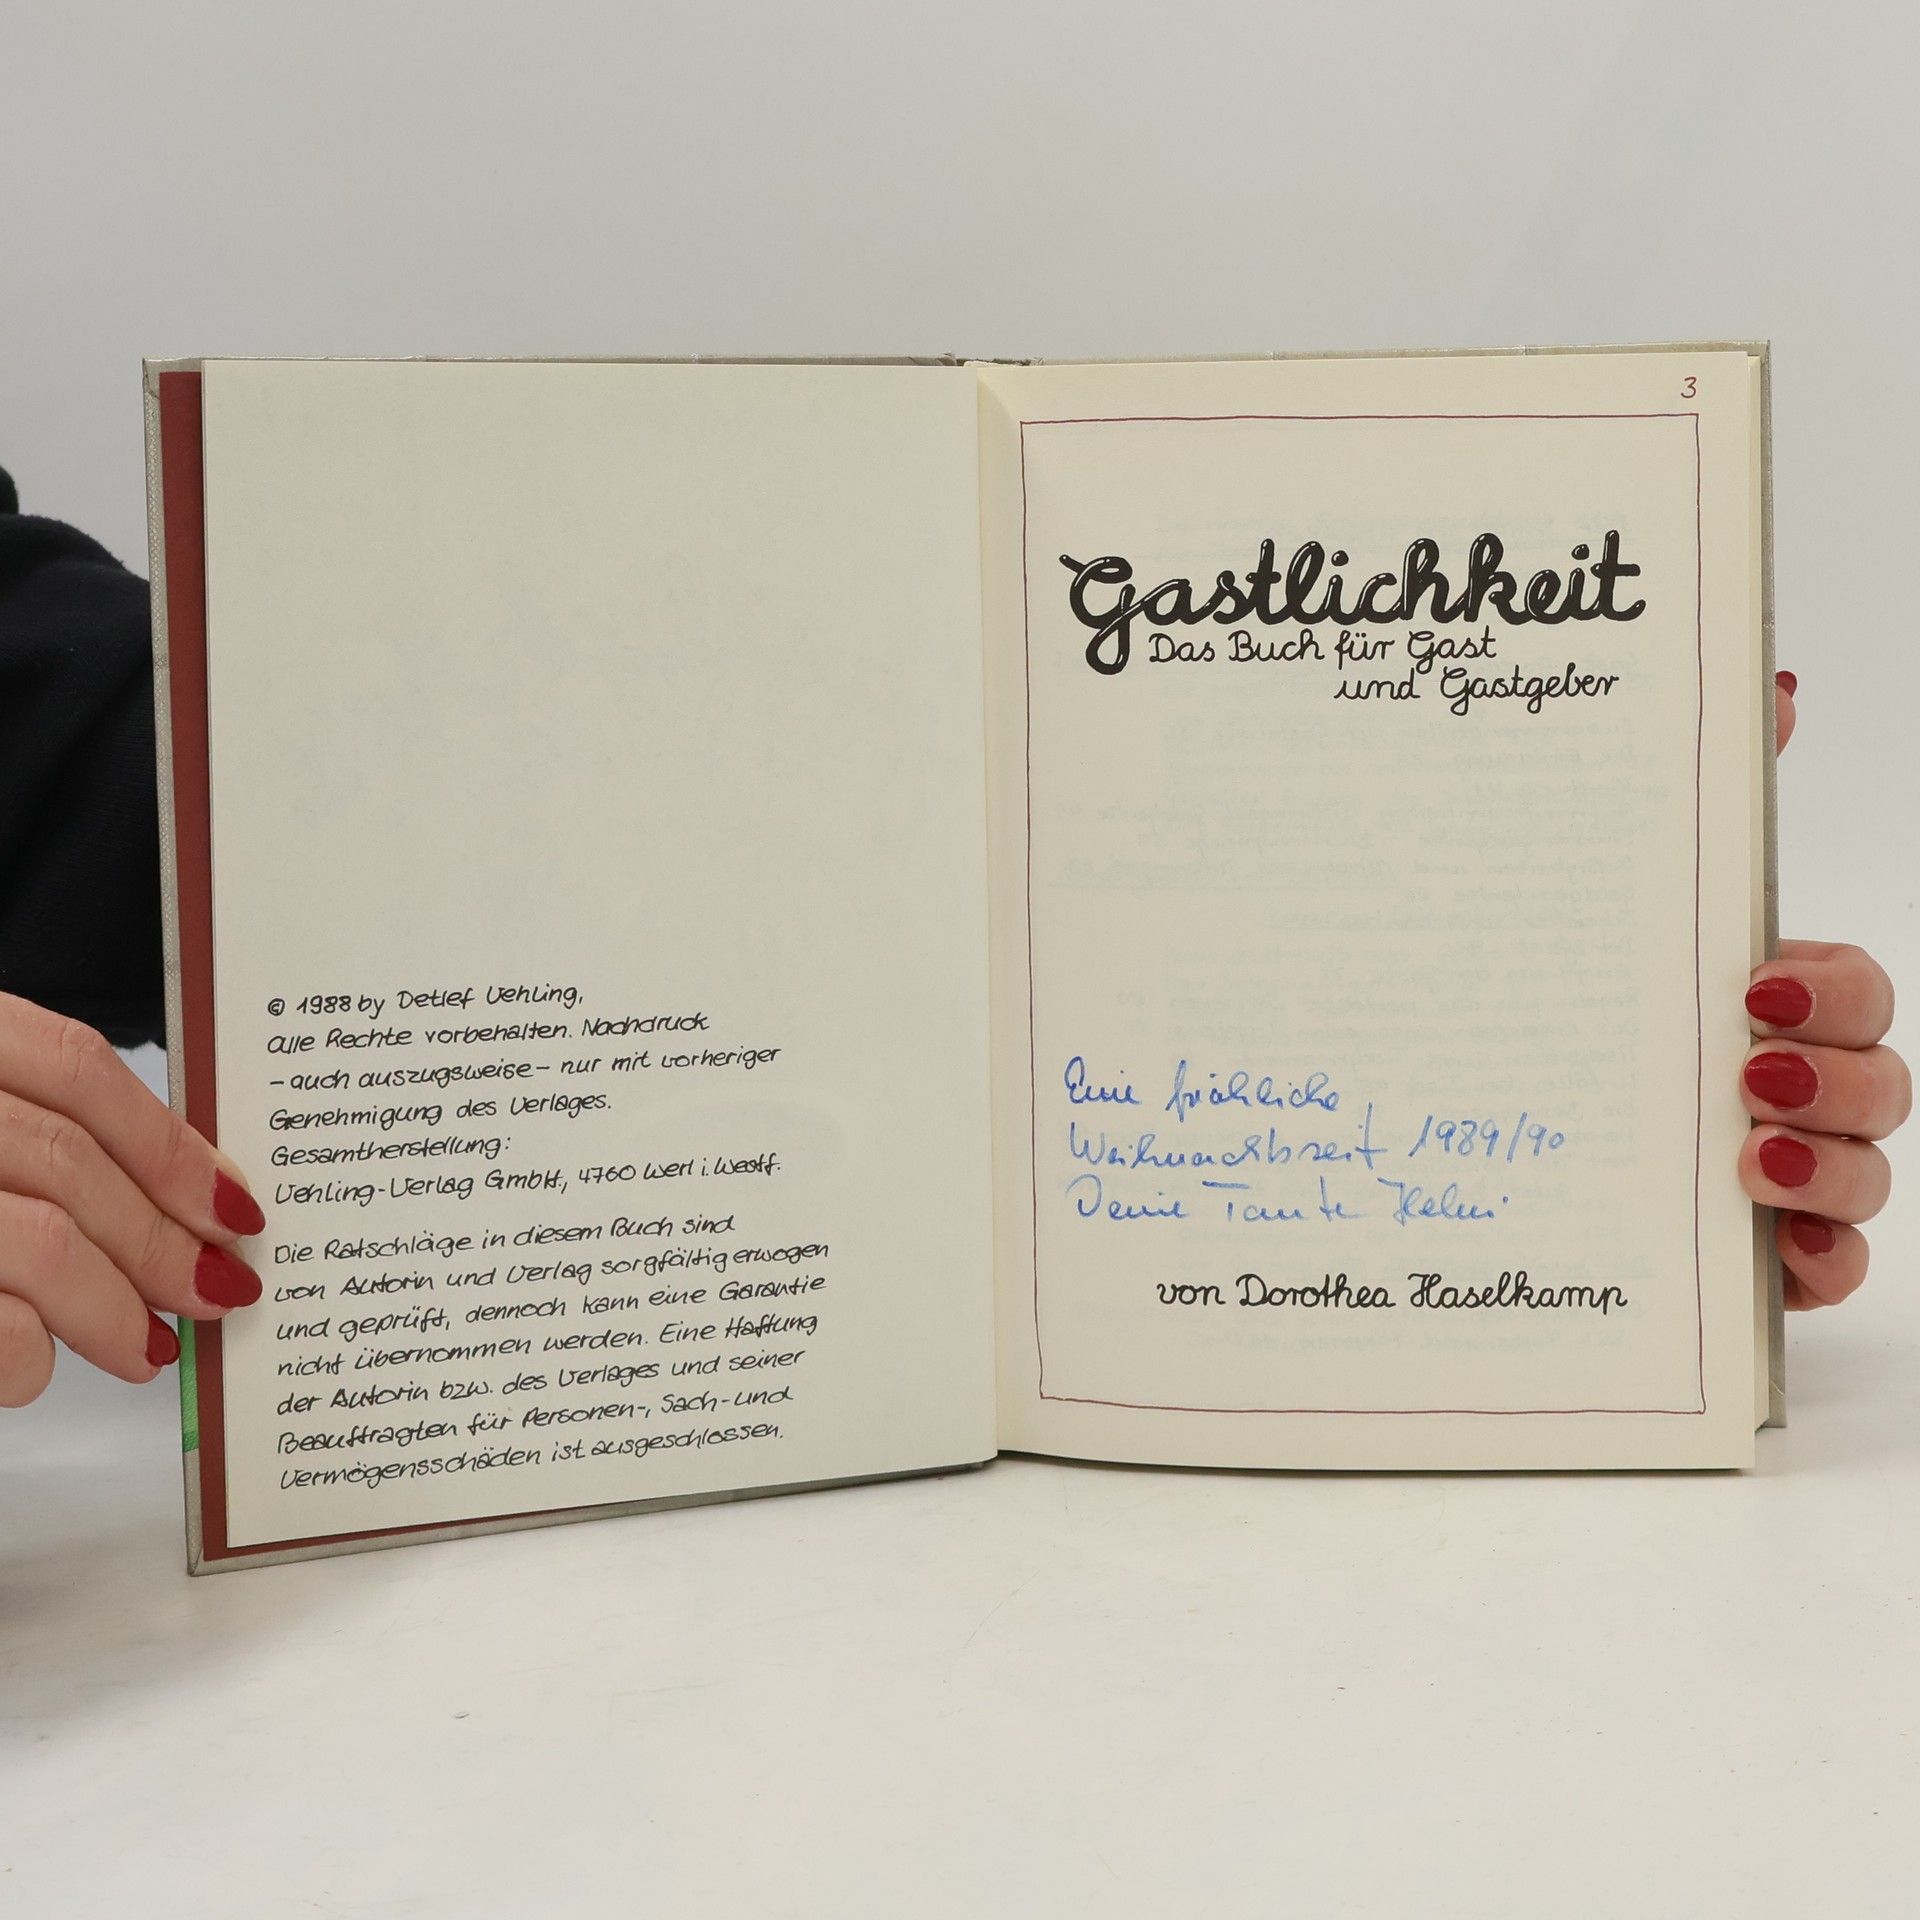 © 1988 by Detlef Uehling,
alle Rechte vorbehalten. Nachdruck
– auch auszugsweise – nur mit vorheriger
Genehmigung des Verlages.
Gesamtherstellung:
Uehling-Verlag GmbH, 4760 Werl i. Westf.
Die Ratschläge in diesem Buch sind
von Autorin und Verlag sorgfältig erwogen
und geprüft, dennoch kann eine Garantie
nicht übernommen werden. Eine Haftung
der Autorin bzw. des Verlages und seiner
Beauftragten für Personen-, Sach- und
Vermögensschäden ist ausgeschlossen.
3
Gastlichkeit
Das Buch für Gast
und Gastgeber
Eine fröhliche
Weihnachtszeit 1989/90
Deine Tante Helmi
von Dorothea Haselkamp